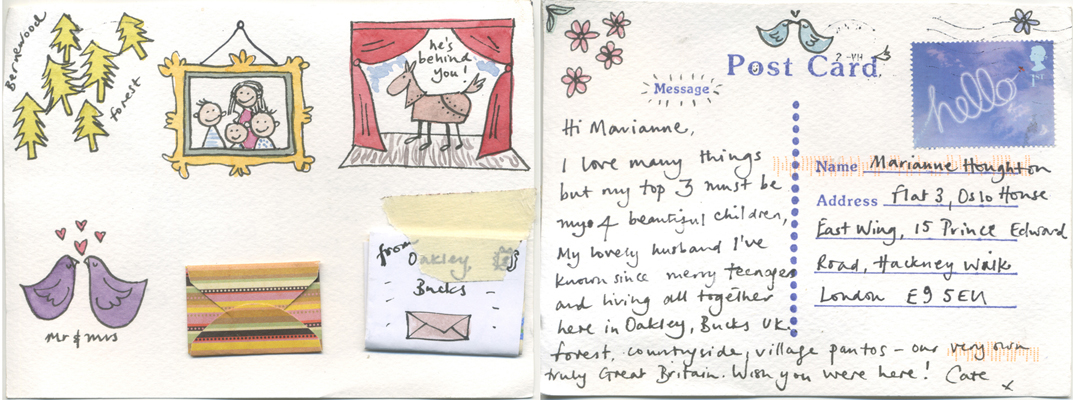 Bernewood
forest
he's
behind
you!
Mr & Mrs
from
Oakley,
Bucks
Post Card
Message
Hi Marianne,
I love many things
but my top 3 must be
my 4 beautiful children,
My lovely husband I've
known since merry teenager
and living all together
here in Oakley, Bucks UK.
forest, countryside, village pantos - our very own
truly Great Britain. Wish you were here! Cate
x
hello
1ST
Name Marianne Houghton
Address Flat 3, Oslo House
East Wing, 15 Prince Edward
Road, Hackney Wick
London E9 5EU